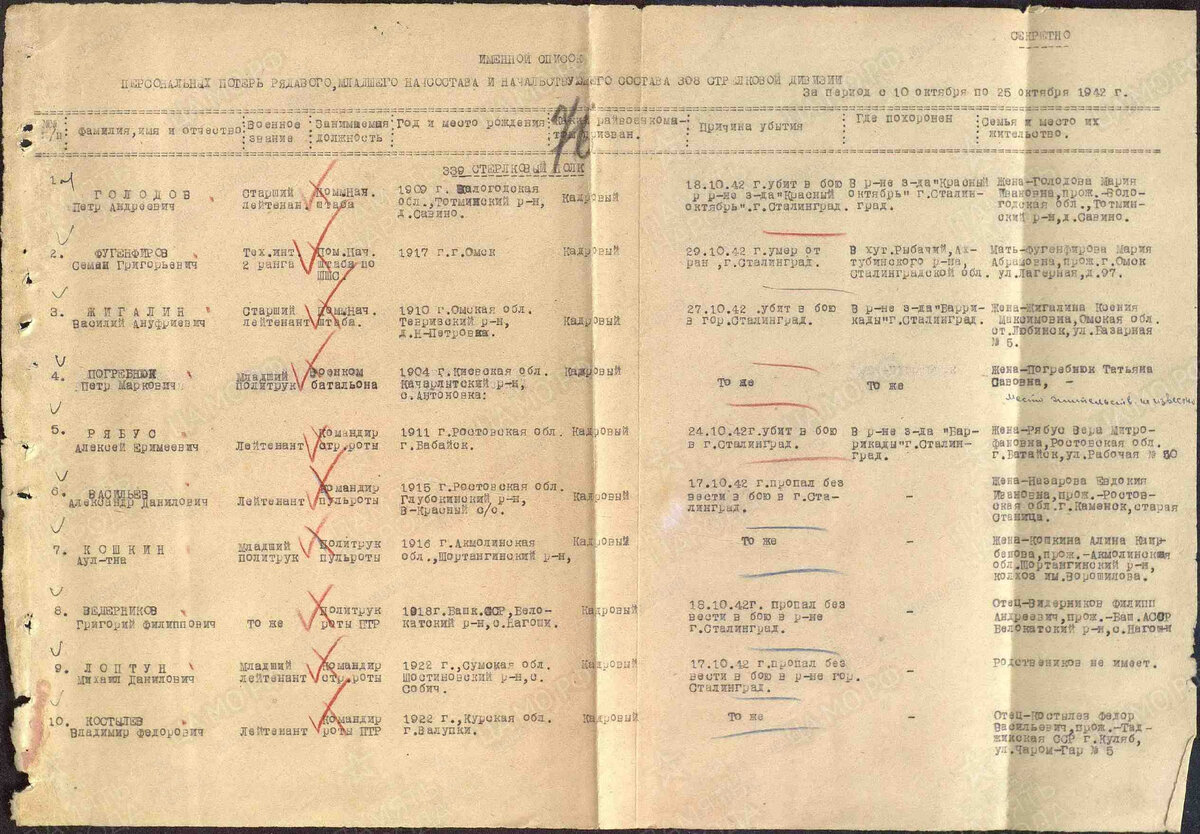 СЕКРЕТНО
ИМЕННОЙ СПИСОК
ПЕРСОНАЛЬНЫХ ПОТЕРЬ РЯДАВОГО, МЛАДШЕГО НАЧСОСТАВА И НАЧАЛЬСТВУЩЕГО СОСТАВА 308 СТРЕЛКОВОЙ ДИВИЗИИ
За период с 10 октября по 25 октября 1942 г.
№№ п/п
фамилия, имя и отчество
Военное звание
Занимаемая должность
Год и место рождения
Каким райвоенкоматом призван.
Причина убытия
Где похоронен
Семья и место их жительство.
339 СТЕРЛКОВЫЙ ПОЛК
1. ГОЛОДОВ Старший Пом.Нач. 1909 г. Валогодская Кадровый 18.10.42 г.убит в бою В р-не з-да"Красный Жена-Голодова Мария
Петр Андреевич лейтенан штаба обл.,Тотминский р-н, р р-не з-да"Красный октябрь" г.Сталин- Ивановна,прож.-Воло-
д.Савино. октябрь".г.Сталинград. град. годская обл.,Тотьмин-
ский р-н,д.Савино.
2. ФУГЕНФИРОВ Тех.инт. Пом.Нач. 1917 г.г.Омск Кадровый 29.10.42 г.умер от В хут.Рыбачий,Ах- Мать-фугенфирова Мария
Семен Григорьевич 2 ранга штаба по ран ,г.Сталинград. тубинского р-на, Абрамовна,прож.г.Омск
ШШС Сталинградской обл. ул.Лагерная,д.97.
3. ЖИГАЛИН Старший Пом.Нач. 1910 г.Омская обл. Кадровый 27.10.42 г.убит в бою В р-не з-да"Барри- Жена-Жигалина Ксения
Василий Ануфриевич лейтенант штаба. Тевризский р-н, в гор.Сталинград. кады"г.Сталинград. Максимовна,Омской обл.
д.Н-Петровка. ст.Любинск,ул.Базарная
№ 5.
4. ПОГРЕБНЮК Младший Военком 1904 г.Киевская обл. Кадровый То же То же Жена-Погребнюк Татьяна
Петр Маркович политрук батальона Качерлытский р-н, Савовна, -
с.Антоновка: место жительств. неизвестно
5. РЯБУС Лейтенант Командир 1911 г.Ростовская обл. Кадровый 24.10.42г.убит в бою В р-не з-да "Бар- Жена-Рябус Вера Митро-
Алексей Еримеевич стр.роты г.Бабайск. в г.Сталинград. рикады"г.Сталин- факовна,Ростовская обл.
град. г.Батайск,ул.Рабочая № 30
6. ВАСИЛЬЕВ Лейтенант Командир 1915 г.Ростовская обл. Кадровый 17.10.42 г.пропал без - Жена-Назарова Евдокия
Александр Данилович пульроты Глубокинский р-н, вести в бою в г.Ста- Ивановна,прож.-Ростов-
В-Красный с/с. линград. ская обл.г.Каменск,старая
Станица.
7. КОШКИН Младший Политрук 1916 г.Акмолинская Кадровый То же - Жена-Кошкина Алина
Аул-тна политрук пульроты обл.,Шортангинский р-н, прож.-Акмолинская
обл.Шортангинский р-н,
колхоз им.Ворошилова.
8. ВЕДЕРНИКОВ То же Политрук 1918г.Башк.ССР,Бело- Кадровый 18.10.42г. пропал без - Отец-Видерников филипп
Григорий филиппович роты ПТР катский р-н,с.Нагоши. вести в бою в р-не Андреевич,прож.-Баш.АССР
г.Сталинград. Белокатский р-н,с.Нагоши
9. ЛОПТУН Младший Командир 1922 г.,Сумская обл. Кадровый 17.10.42 г.пропал без - Родствеников не имеет.
Михаил Данилович лейтенант стр.роты Шостиновский р-н,с. вести в бою в р-не гор.
Собич. Сталинград.
10. КОСТЫЛЕВ Лейтенант Командир 1922 г.,Курская обл. Кадровый То же - Отец-Костылев федор
Владимир федорович роты ПТР г.Валупки. Васильевич,прож.-Тад-
жикская ССР г.Куляб,
ул.Чаром-Гар № 5